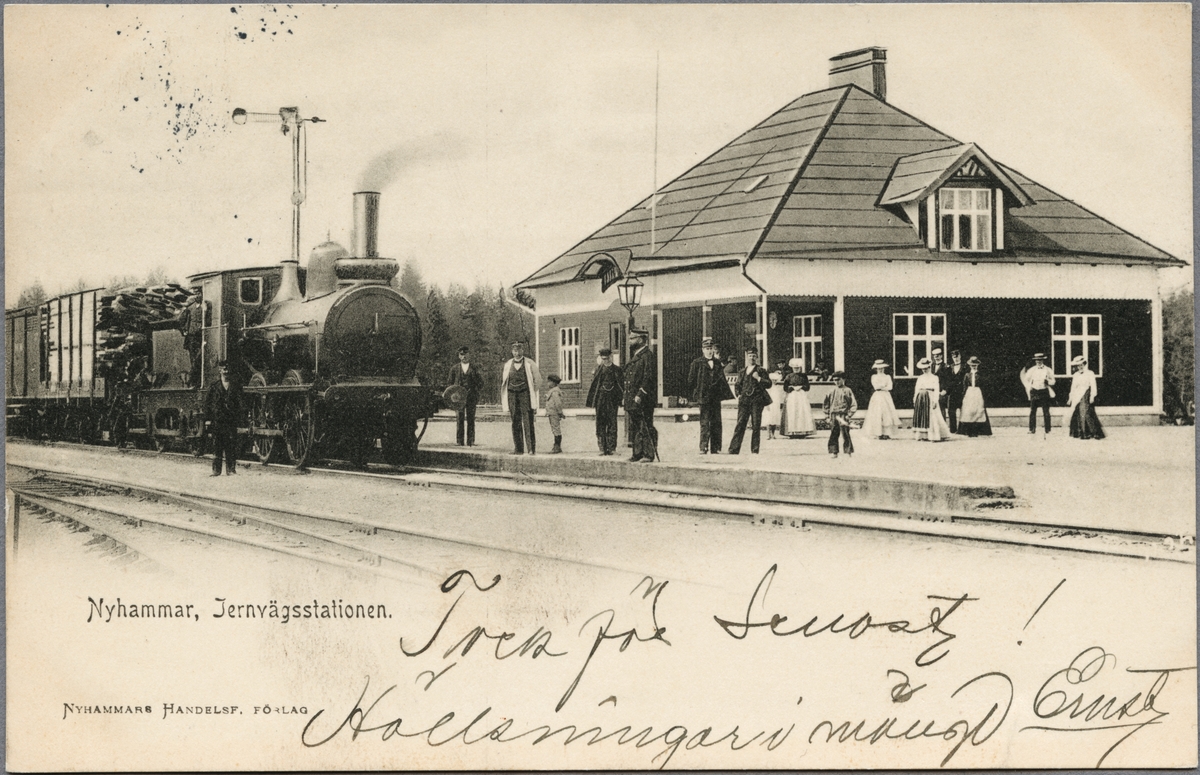 Nyhammar, Jernvägsstationen.
Tack för Senast !
Hällsningar i mängd Ernst
NYHAMMARS HANDELSF. FÖRLAG